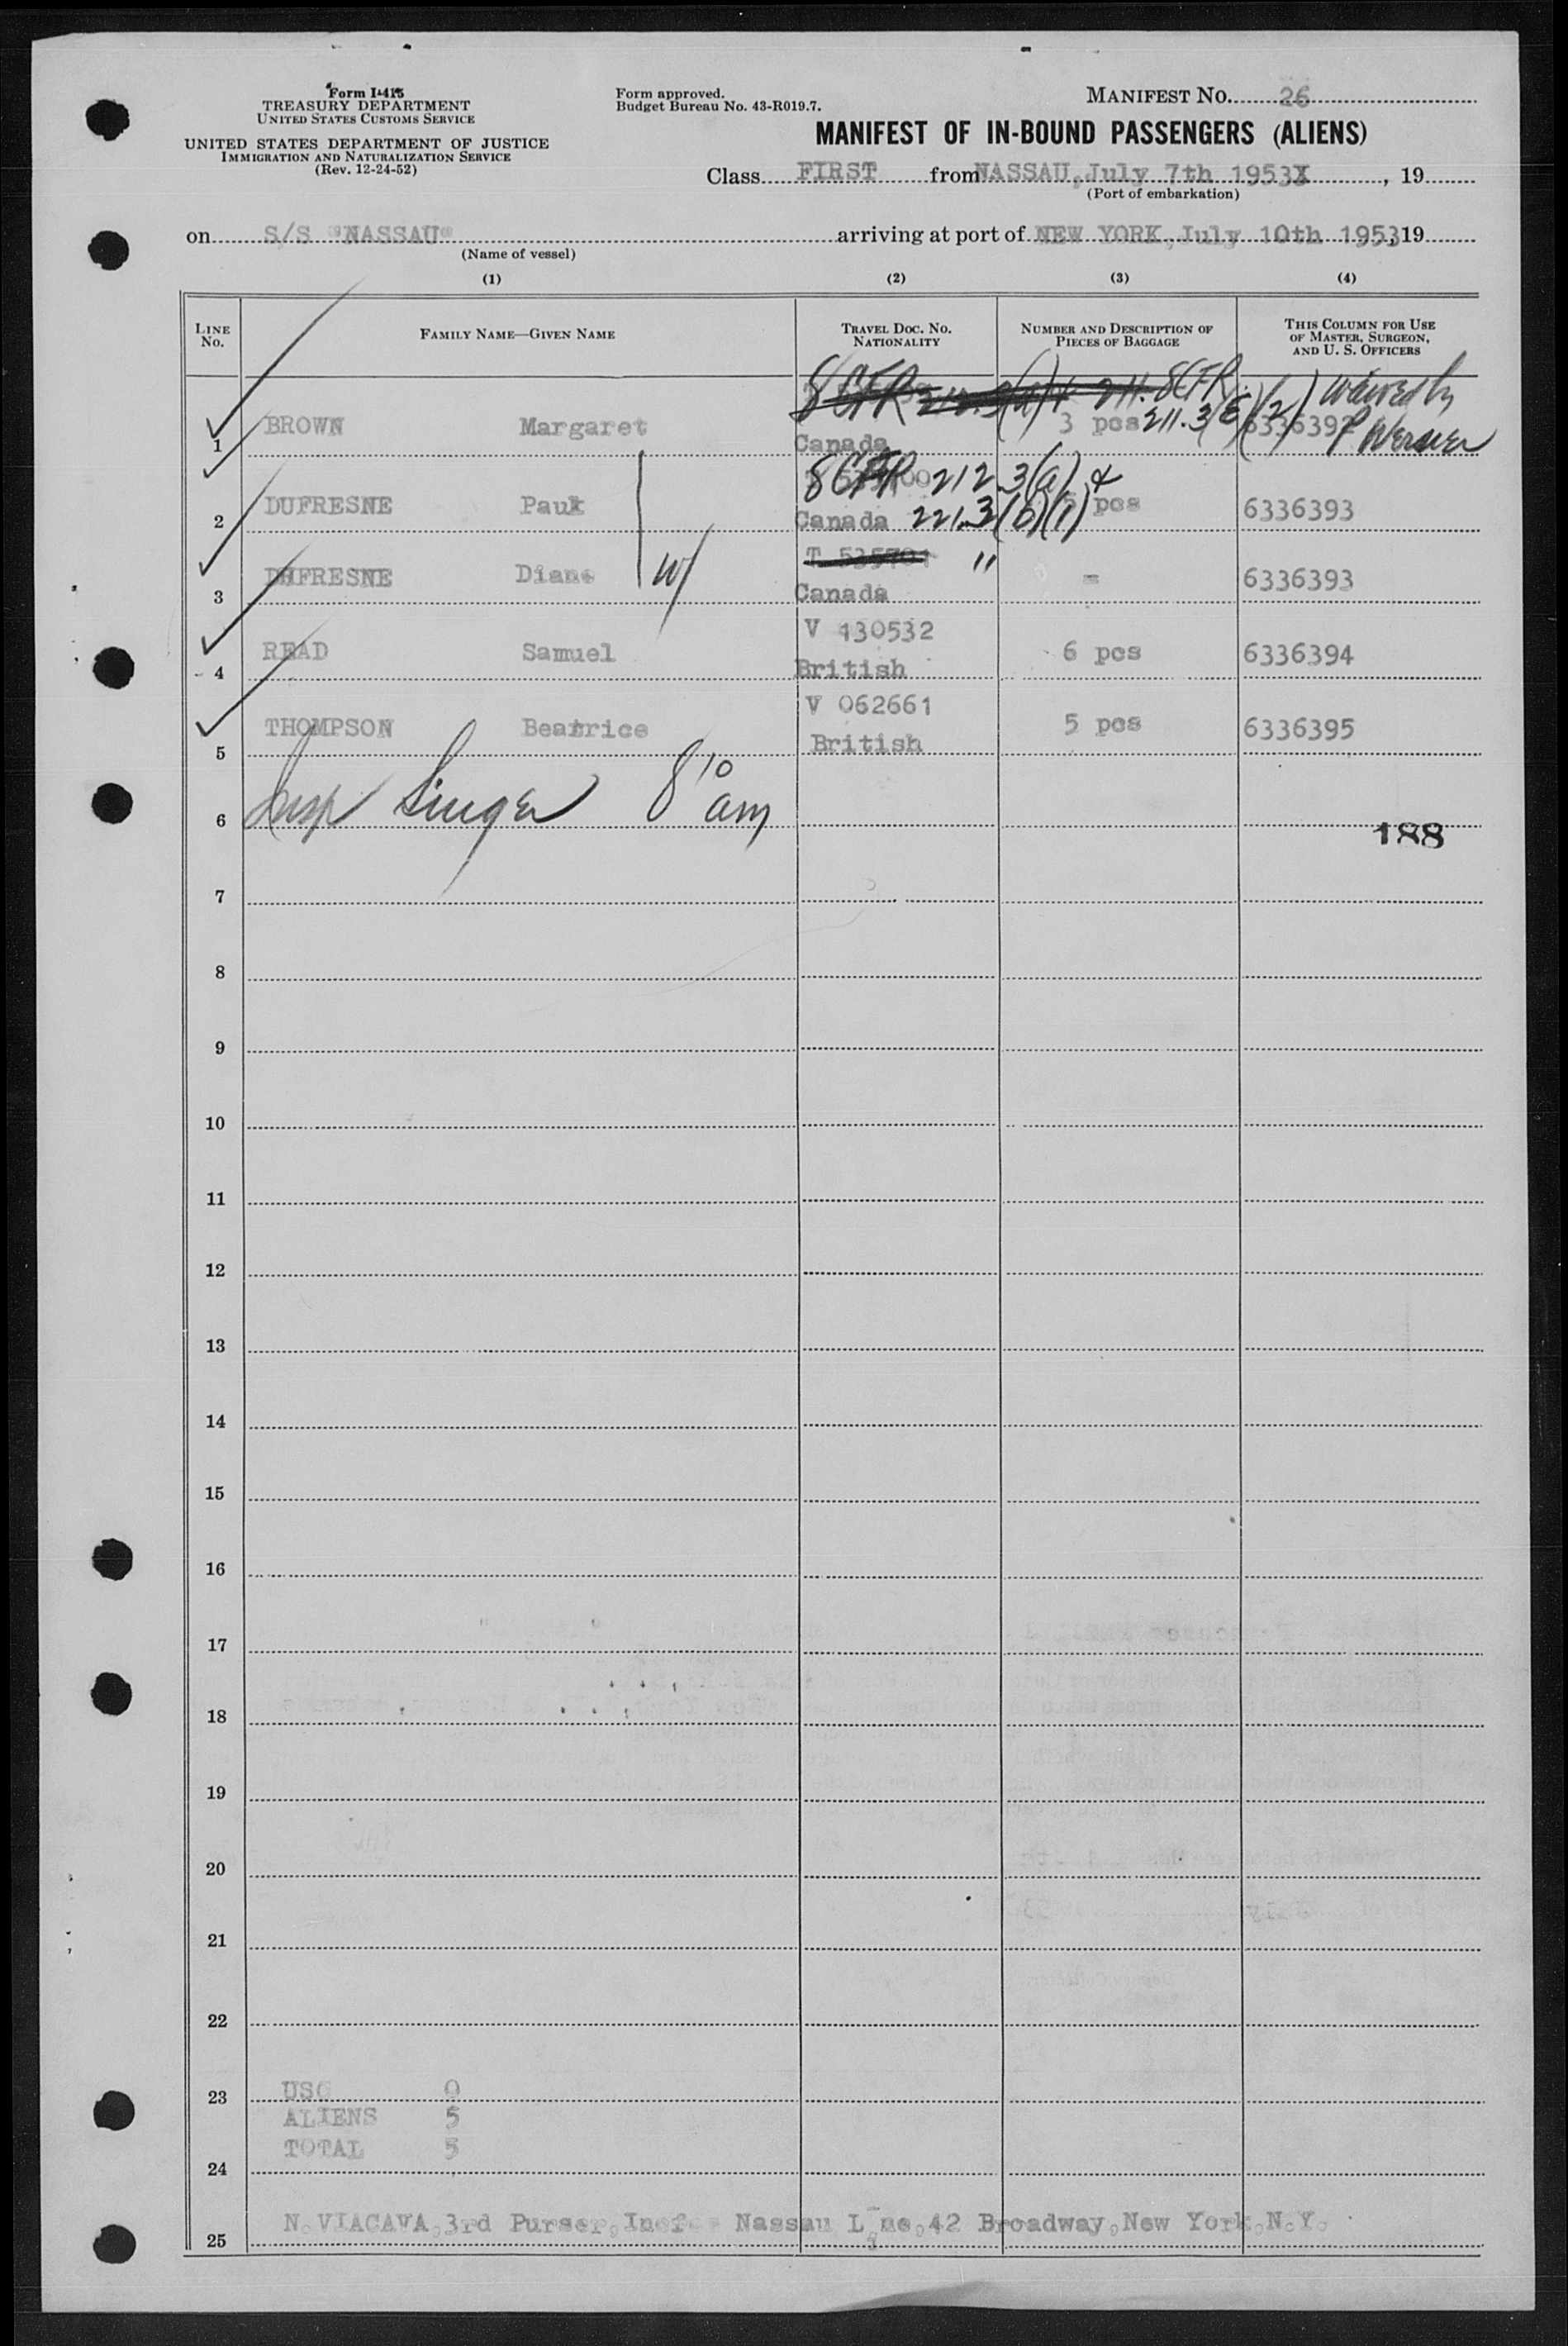 Form I-415
TREASURY DEPARTMENT
UNITED STATES CUSTOMS SERVICE
UNITED STATES DEPARTMENT OF JUSTICE
IMMIGRATION AND NATURALIZATION SERVICE
(Rev. 12-24-52)
Form approved.
Budget Bureau No. 43-R019.7.
MANIFEST NO. 26
MANIFEST OF IN-BOUND PASSENGERS (ALIENS)
Class FIRST from NASSAU, July 7th 1953X, 19
(Port of embarkation)
on S/S "NASSAU" arriving at port of NEW YORK, July 10th 1953, 19
(Name of vessel)
(1) (2) (3) (4)
LINE No. FAMILY NAME—GIVEN NAME TRAVEL DOC. NO. NATIONALITY NUMBER AND DESCRIPTION OF PIECES OF BAGGAGE THIS COLUMN FOR USE OF MASTER, SURGEON, AND U. S. OFFICERS
8 CFR 212.3(a) & 211. 8 CFR waived by
1 BROWN Margaret Canada 3 pcs 211.3(E)(2) 6336392 P Werner
8 CFR 212.3(a) &
2 DUFRESNE Paul Canada 221.3(b)(1) 5 pcs 6336393
T 535701 "
3 DUFRESNE Diane W/ Canada = 6336393
V 130532
4 READ Samuel British 6 pcs 6336394
V 062661
5 THOMPSON Beatrice British 5 pcs 6336395
6 Insp Singer 8 10 am
188
7
8
9
10
11
12
13
14
15
16
17
18
19
20
21
22
23 USC 0
ALIENS 5
TOTAL 5
24
25 N. VIACAVA, 3rd Purser, Nassau Line, 42 Broadway, New York, N.Y.